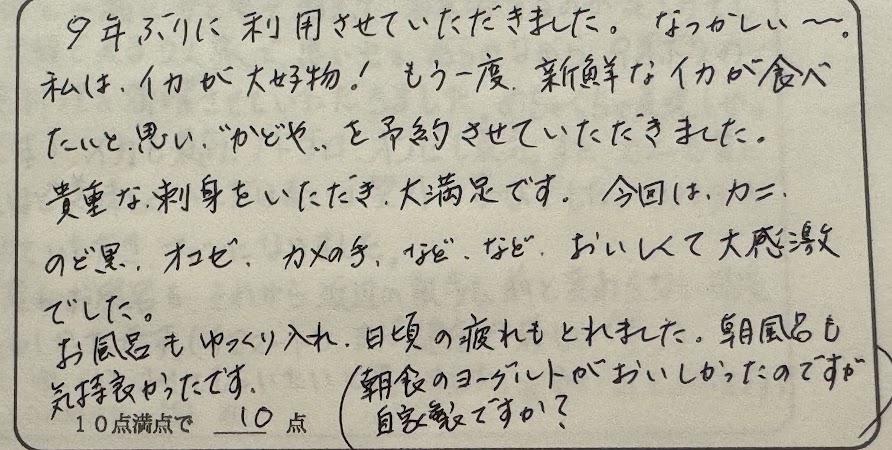 9年ぶりに利用させていただきました。なつかしい〜。
私は、イカが大好物！もう一度、新鮮なイカが食べ
たいと、思い、"かどや"を予約させていただきました。
貴重な、刺身をいただき、大満足です。今回は、カニ、
のど黒、オコゼ、カメの手、など、など、おいしくて大感激
でした。
お風呂もゆっくり入れ、日頃の疲れもとれました。朝風呂も
気持良かったです。
(朝食のヨーグルトがおいしかったのですが
自家製ですか？)
10点満点で 10 点